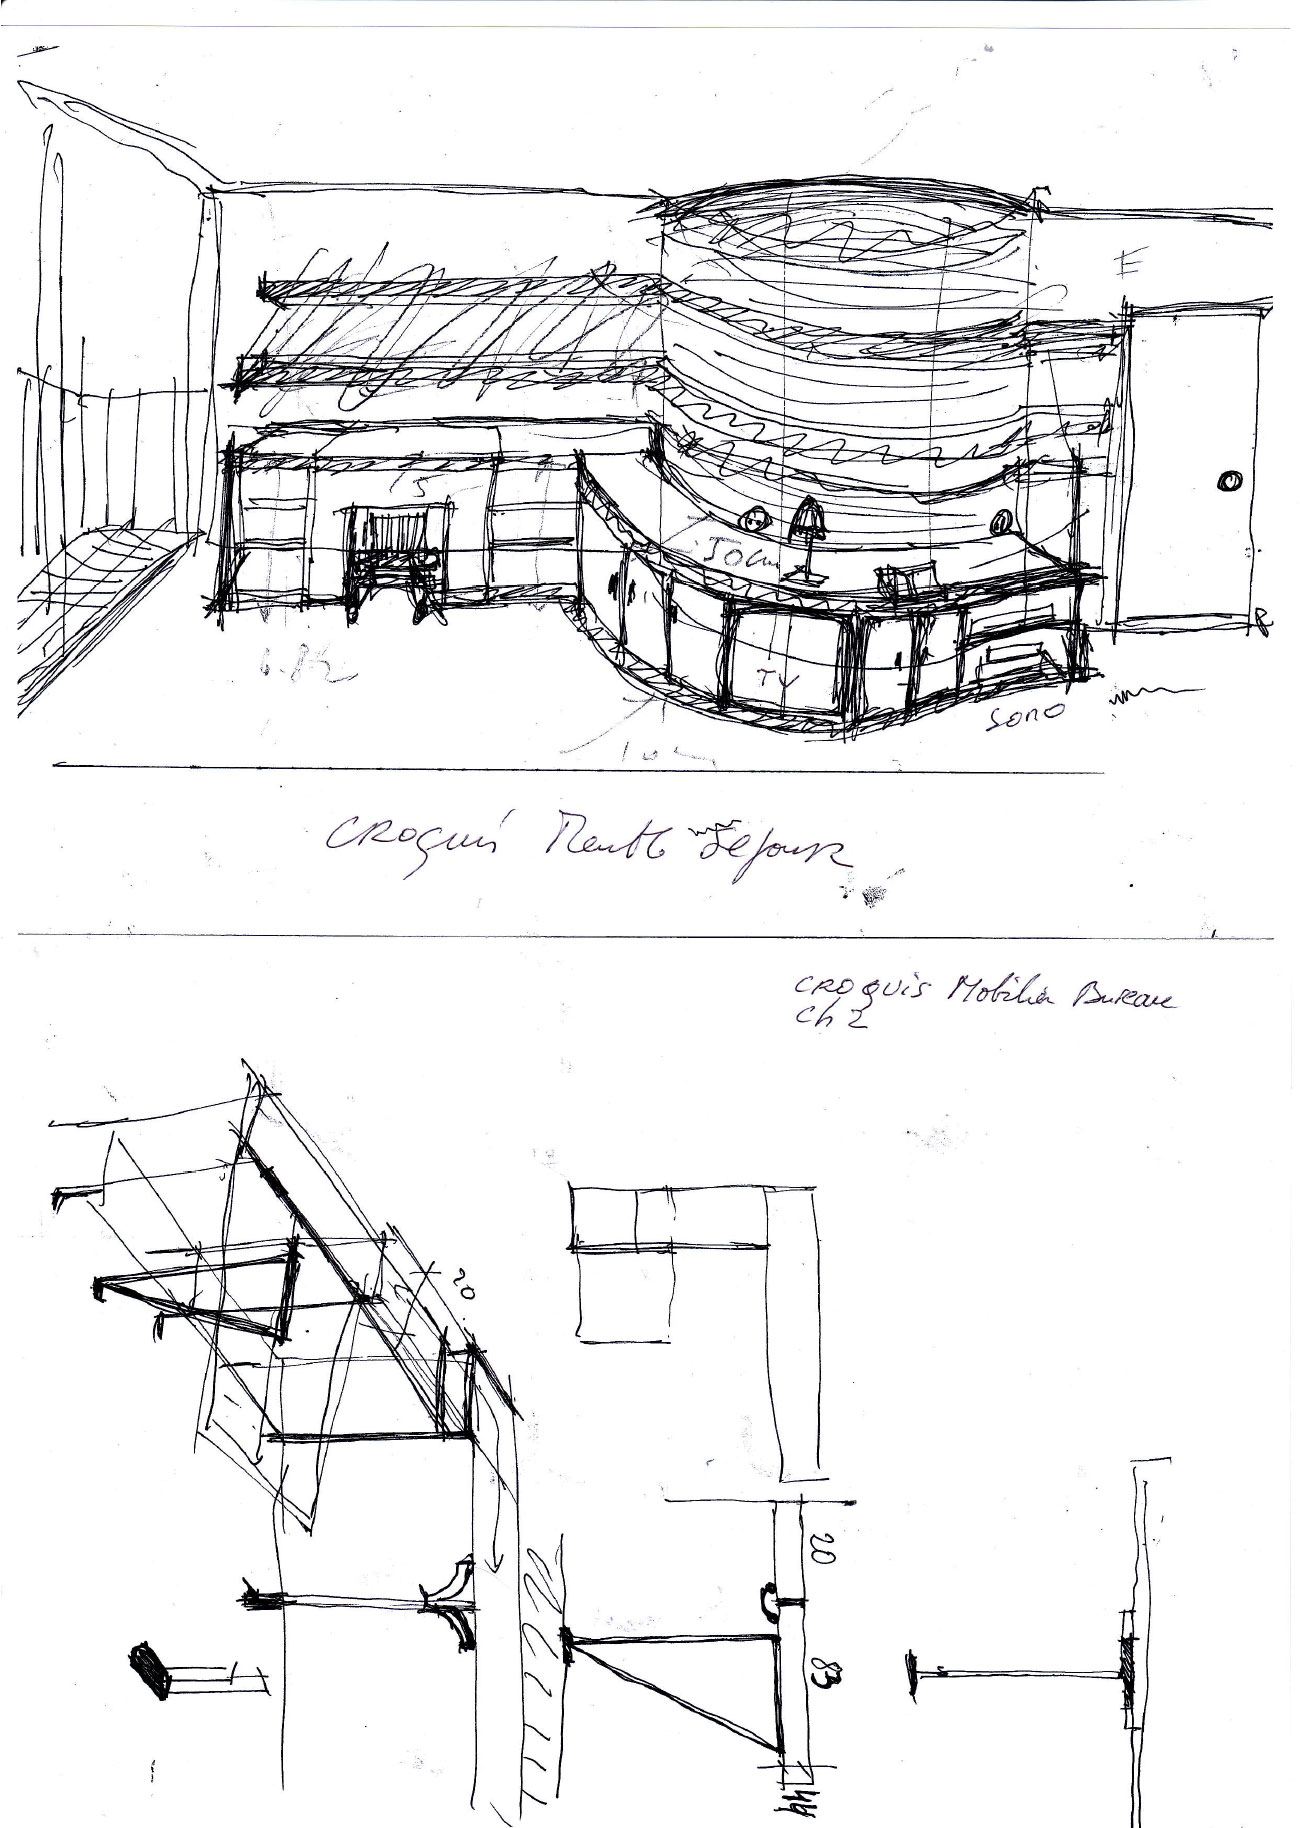 E
TV
SONO
CROQUIS Meuble Sejour
CROQUIS Mobilier Bureau
Ch 2
20
20
83
44